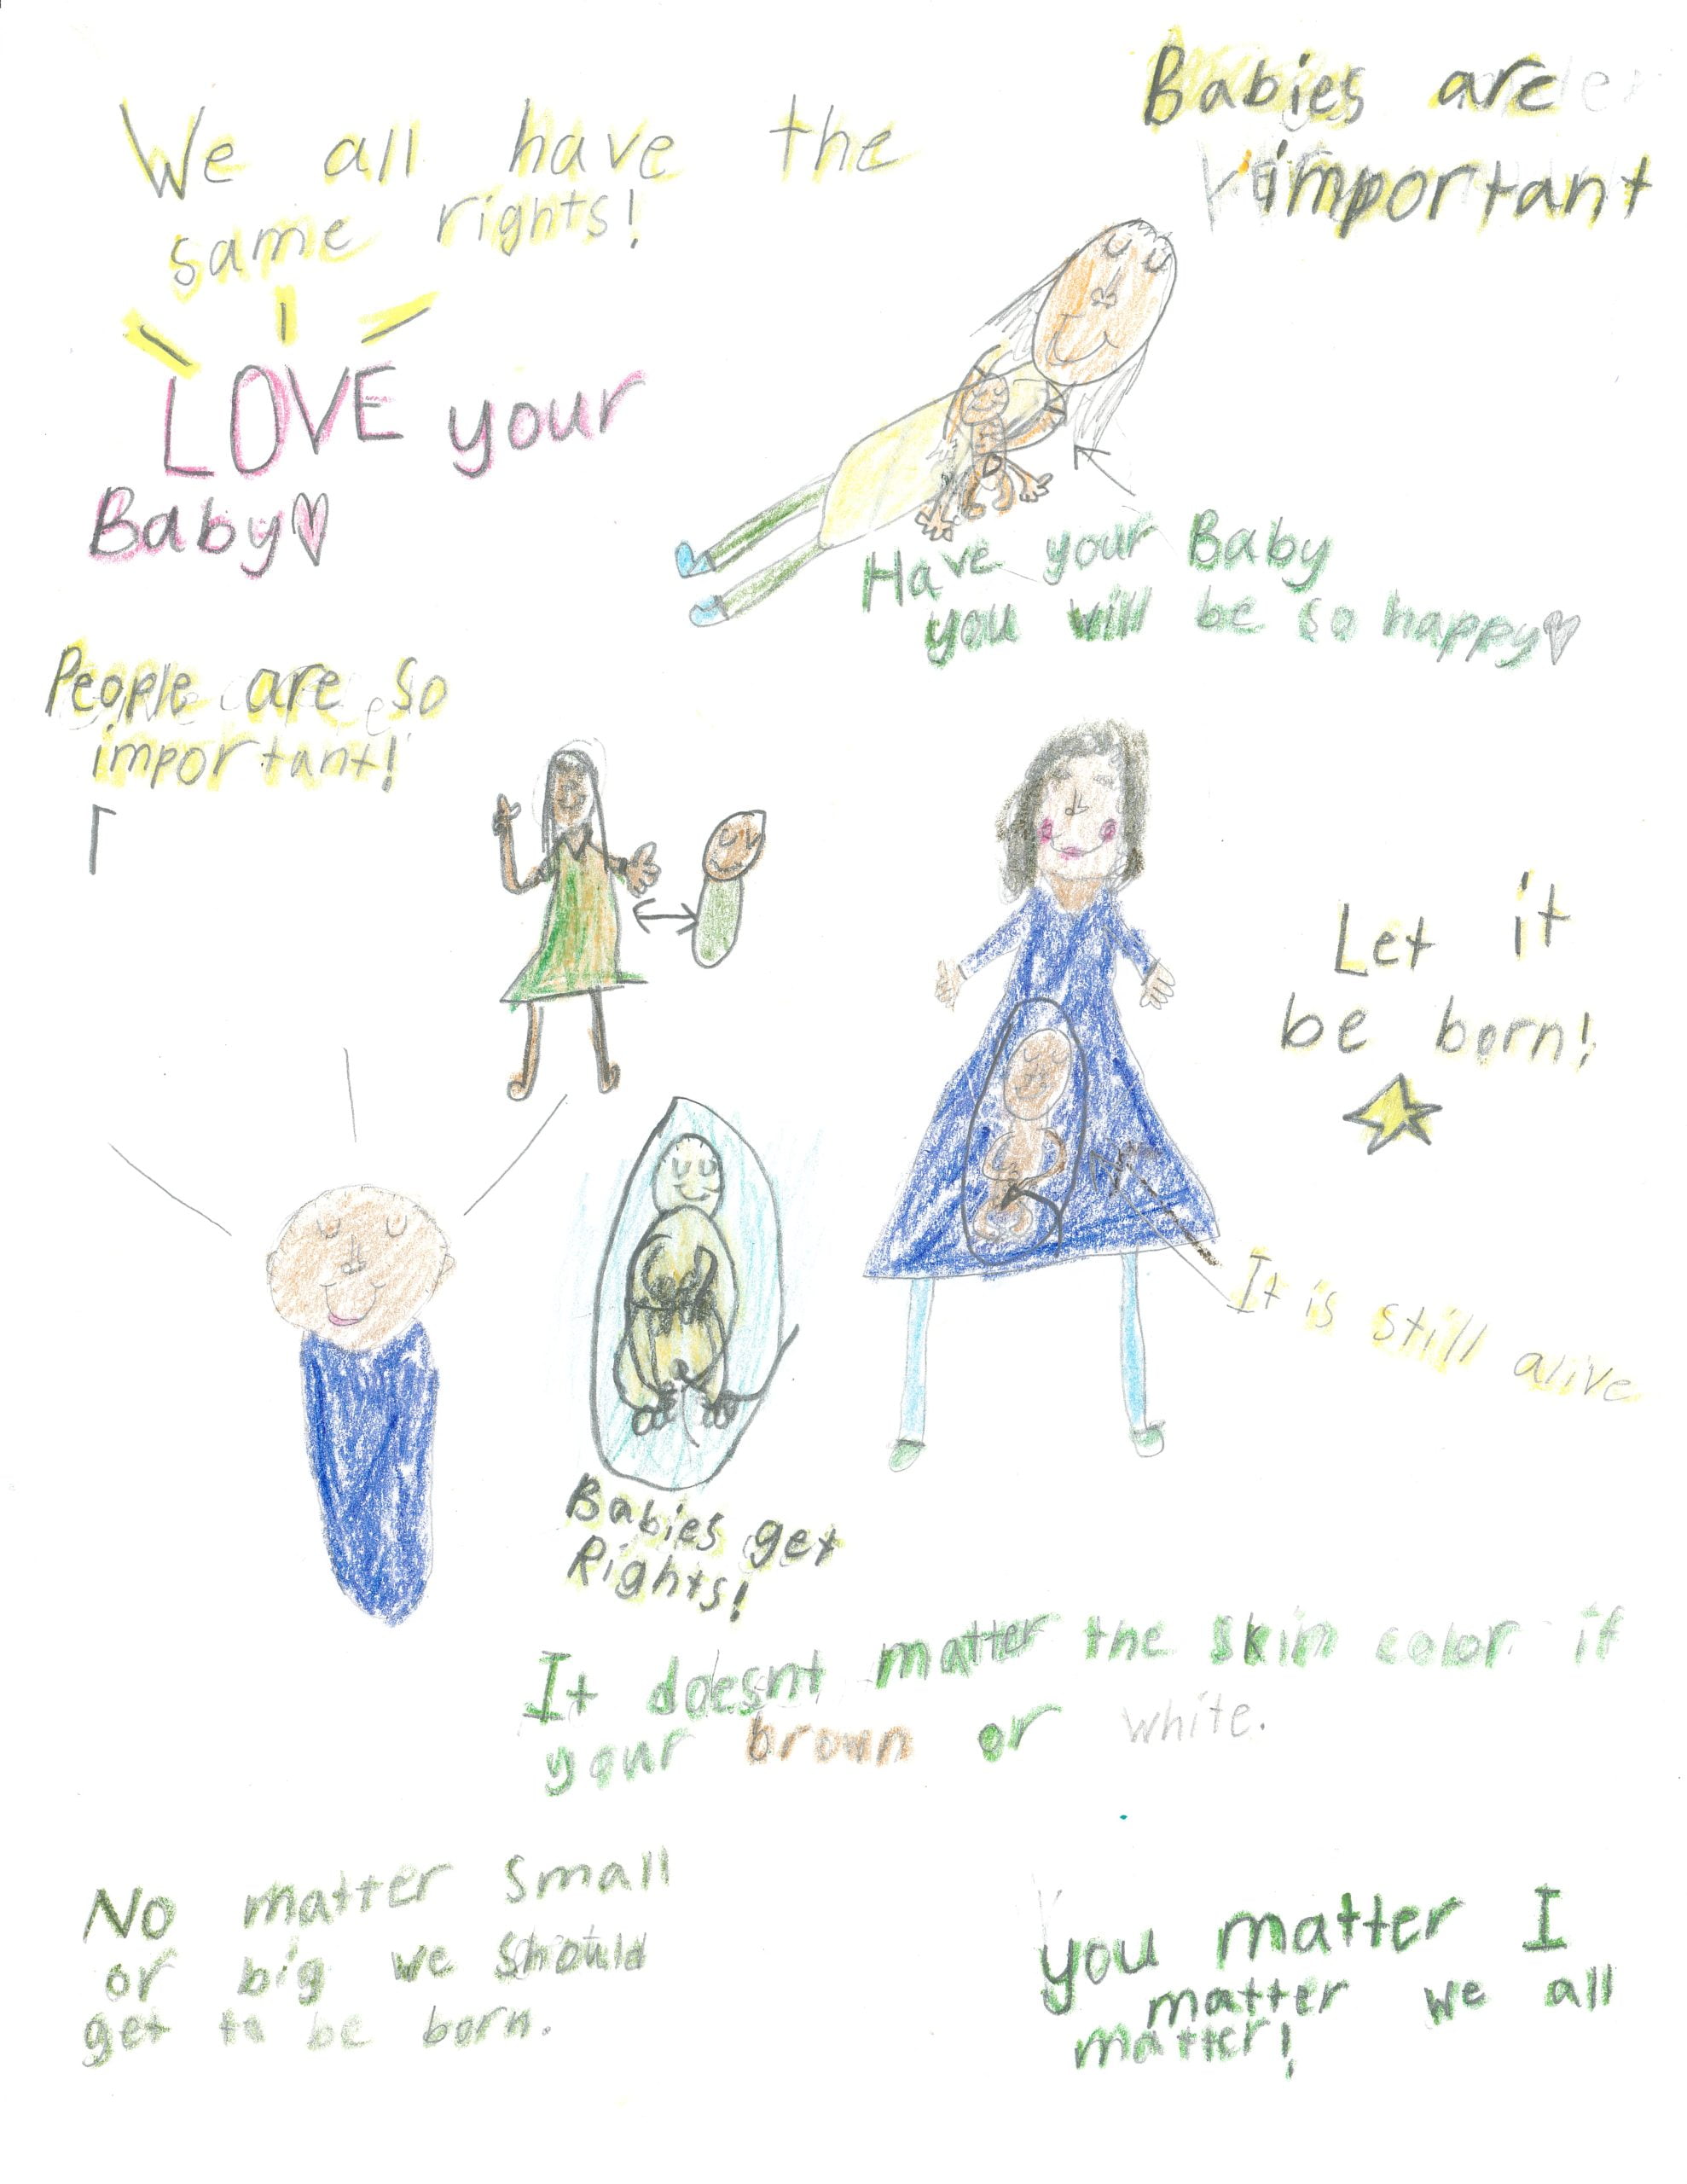 We all have the
same rights!
Babies are
important
LOVE your
Baby
Have your Baby
you will be so happy
People are so
important!
Let it
be born!
It is still alive
Babies get
Rights!
It doesnt matter the skin color if
your brown or white.
No matter small
or big we should
get to be born.
you matter I
matter we all
matter!